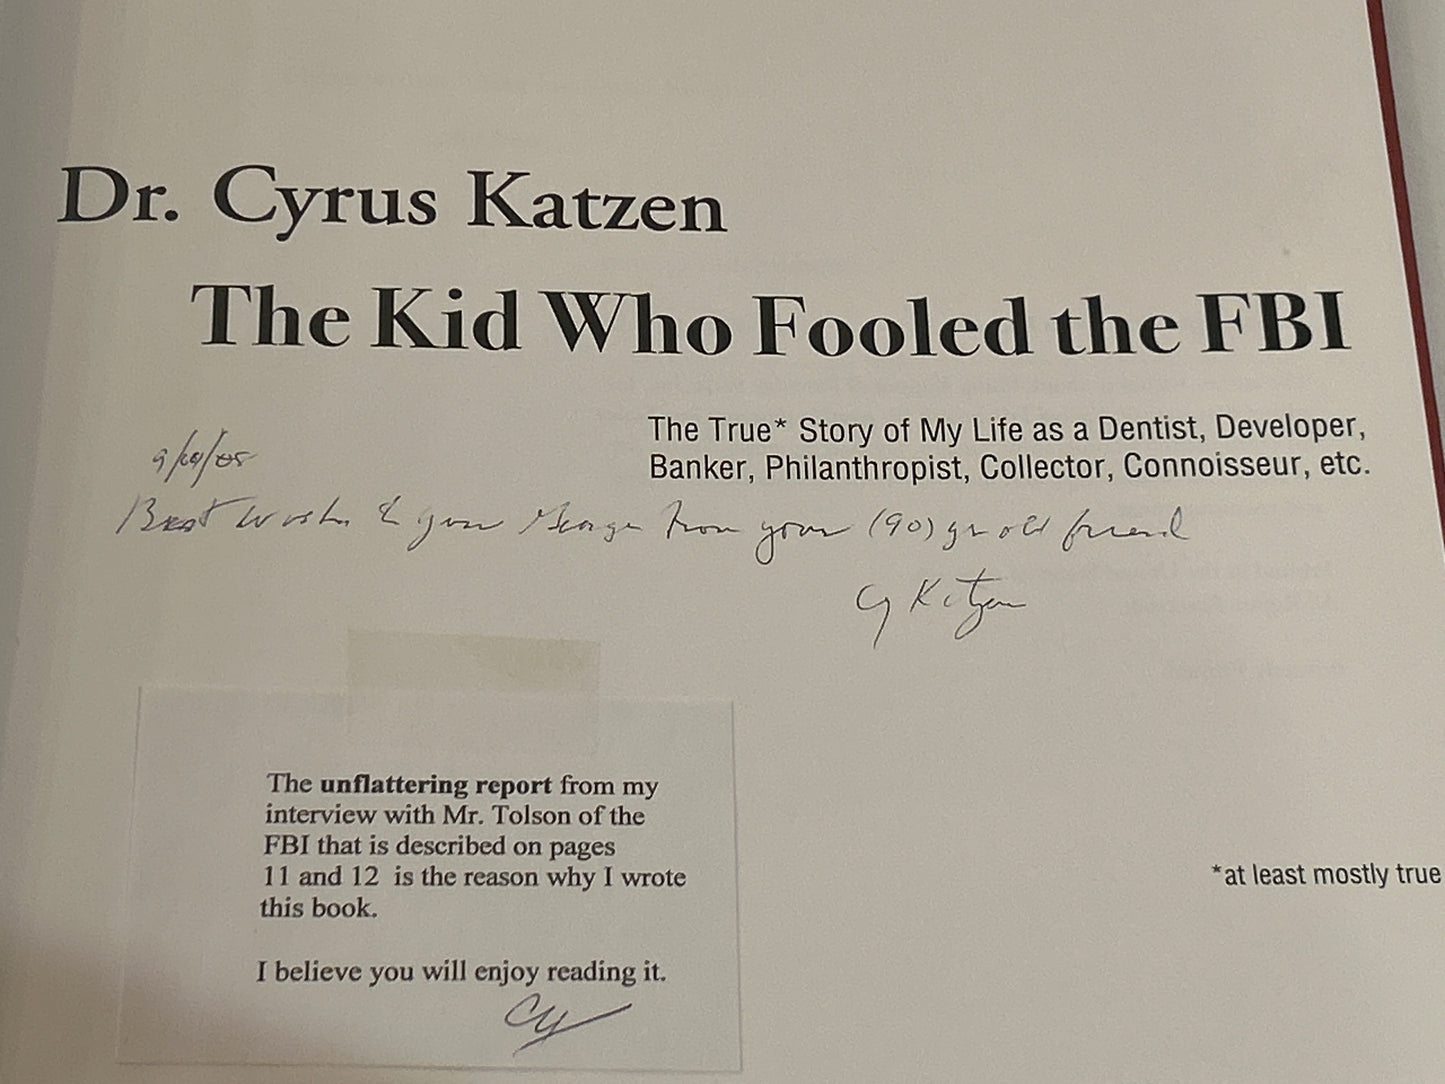 Dr. Cyrus Katzen
The Kid Who Fooled the FBI
The True* Story of My Life as a Dentist, Developer,
Banker, Philanthropist, Collector, Connoisseur, etc.
Best Wishes to you George from your (90) yr old friend
Cy Katzen
The unflattering report from my
interview with Mr. Tolson of the
FBI that is described on pages
11 and 12 is the reason why I wrote
this book.
I believe you will enjoy reading it.
Cy
*at least mostly true